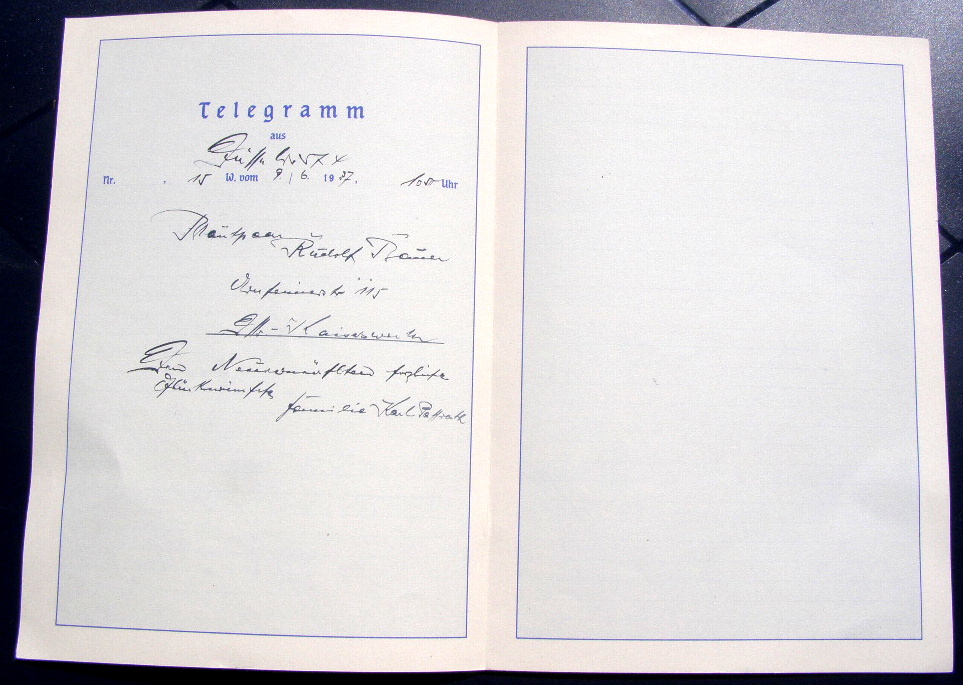 Telegramm
aus
Düsseldorf
Nr. 15 W. vom 9. 6. 1937. 10⁵⁰ Uhr
Brautpaar
Rudolf Bauer
115
Dff.-Kaiserswerth
Den Neuvermählten herzliche
Glückwünsche
Familie Karl